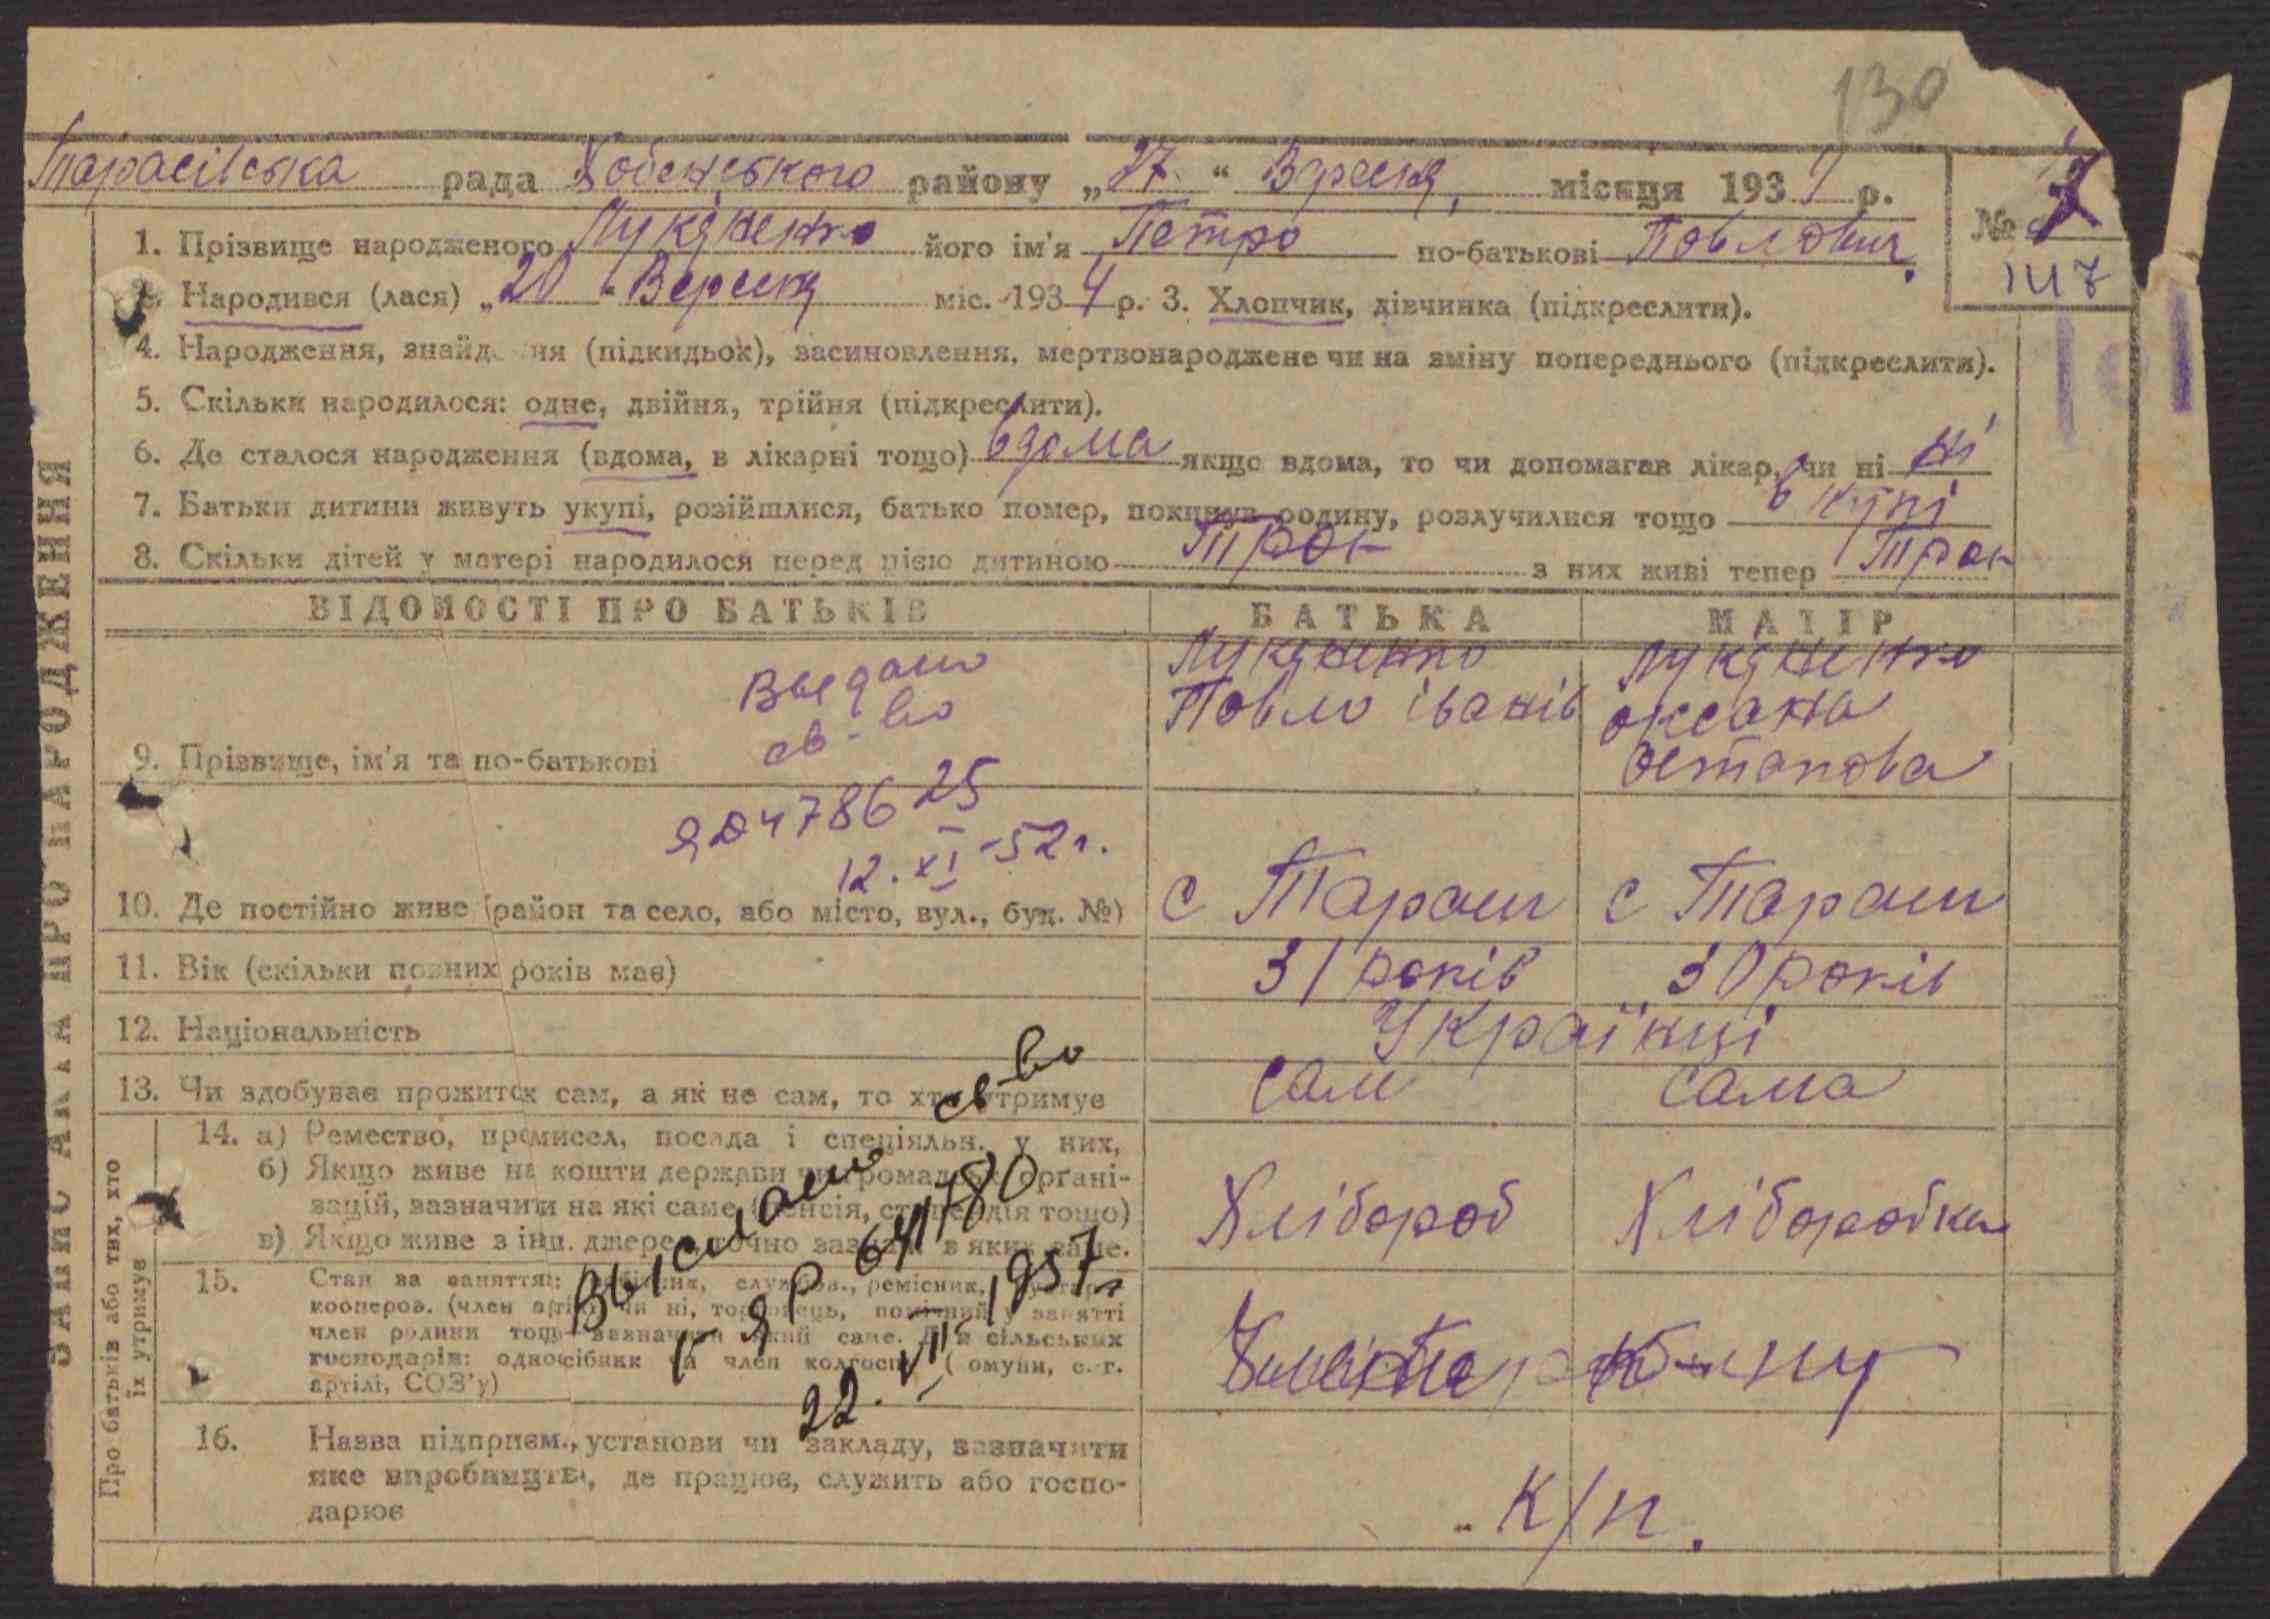 130
Тарасівська рада Хабенського району „27“ Вересня, місяця 1934 р.
№ 7
147
1. Прізвище народженого Лукяненко його ім'я Петро по-батькові Павлович.
Народився (лася) „20“ Вересня міс. 1934 р. 3. Хлопчик, дівчинка (підкреслити).
4. Народження, знайдення (підкидьок), засиновлення, мертвонароджене чи на зміну попереднього (підкреслити).
5. Скільки народилося: одне, двійня, трійня (підкреслити).
6. Де сталося народження (вдома, в лікарні тощо) вдома якщо вдома, то чи допомагав лікар, чи ні ні
7. Батьки дитини живуть укупі, розійшлися, батько помер, покинув родину, розлучилися тощо вкупі
8. Скільки дітей у матері народилося перед цією дитиною Трок з них живі тепер Трок
ВІДОМОСТІ ПРО БАТЬКІВ БАТЬКА МАТІР
9. Прізвище, ім'я та по-батькові
Лукяненко
Павло іванів
Лукяненко
оксана
остапова
Выдано
св-во
ЯД 478625
12.XI-52г.
10. Де постійно живе (район та село, або місто, вул., буд. №) с Тараси с Тараси
11. Вік (скільки повних років має) 31 років 30 років
12. Національність Українці
13. Чи здобуває прожиток сам, а як не сам, то хто утримує сам сама
14. а) Ремество, промисел, посада і спеціяльн. у них,
б) Якщо живе на кошти держави чи громадськ. організацій,
зазначити на які саме (пенсія, стипендія тощо)
в) Якщо живе з інш. джерел, точно зазнач. з яких саме.
Хлібороб Хліборобка
15. Стан за заняттям: службов., ремісник,
кооперов. (член артілі) чи ні, торговець, помічний у занятті
член родини тощо зазначити який саме. Для сільських
господарів: одноосібник чи член колгоспу (комуни, с.-г.
артілі, СОЗ'у)
Выслано
св-во
ІІ ЯР 641780
22.VII-1957г
16. Назва підприєм., установи чи закладу, зазначити
яке виробництво, де працює, служить або господарює
к/п.
ЗАПИС АКТА ПРО НАРОДЖЕННЯ
Про батьків або тих, хто
їх утримує